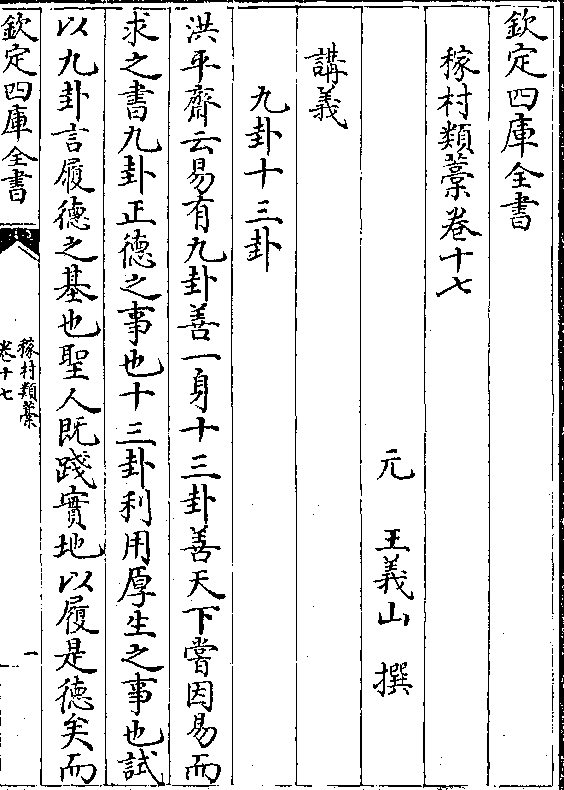 欽定四庫全書
稼村類藁卷十七
元 王義山 撰
講義
九卦十三卦
洪平齋云易有九卦善一身十三卦善天下嘗因易而
求之書九卦正德之事也十三卦利用厚生之事也試
以九卦言履德之基也聖人既踐實地以履是德矣而
欽定四庫全書
稼村類藁
卷十七
一